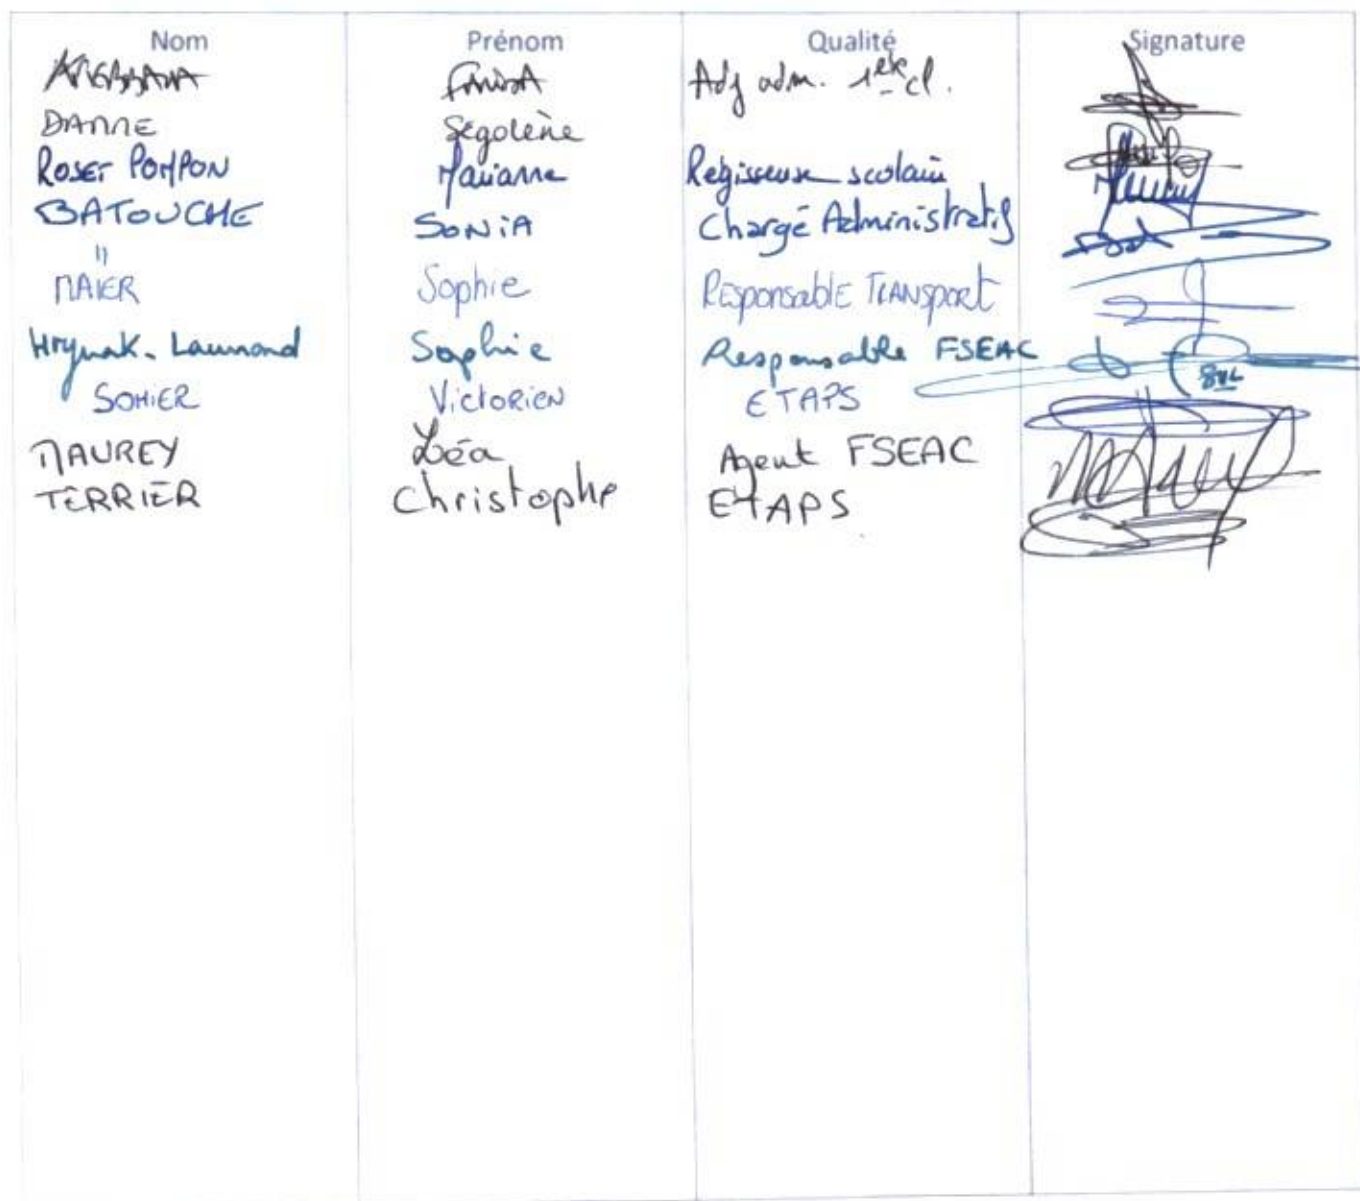 Nom Prénom Qualité Signature
Adj adm. 1ère cl.
DANNE Ségolène
ROSET POMPON Marianne Régisseuse scolaire
BATOUCHE SONIA Chargé Administratif
MAIER Sophie Responsable Transport
Hrynak-Laumond Sophie Responsable FSEAC
SOHIER Victorien ETAPS
MAUREY Léa Agent FSEAC
TERRIER Christophe ETAPS